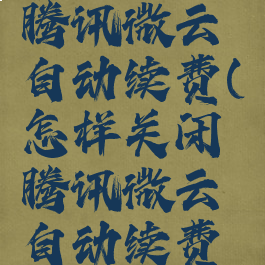 腾讯微云
自动续费(
怎样关闭
腾讯微云
自动续费